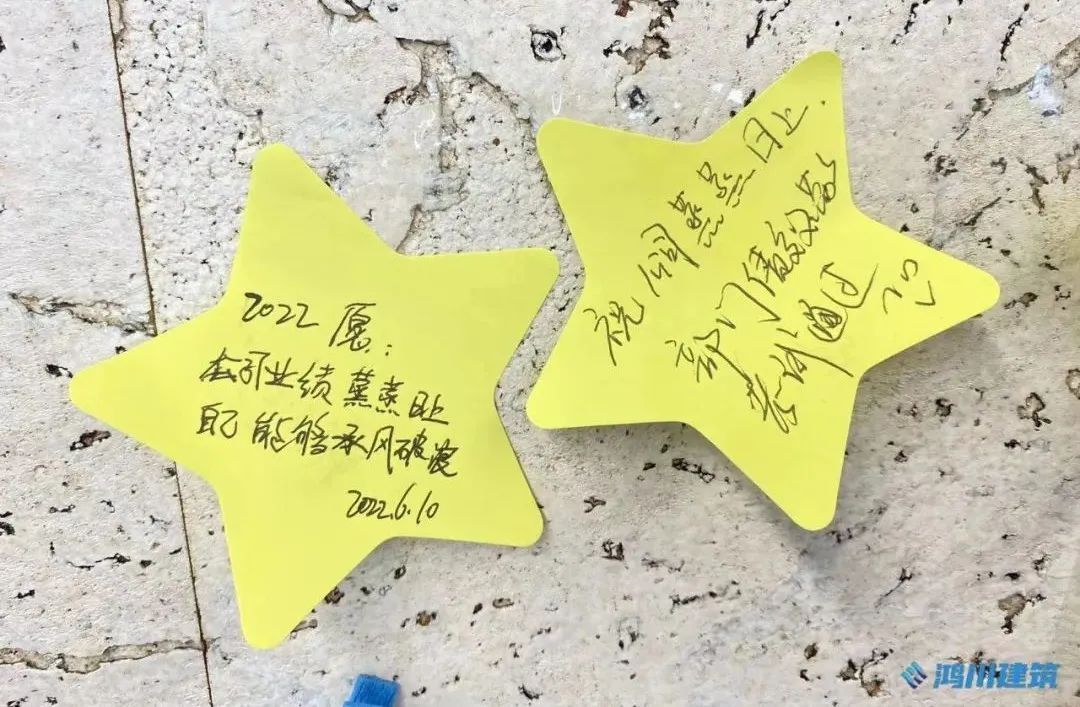 2022 愿:
公司业绩蒸蒸日上
自己能够乘风破浪
2022.6.10
祝公司蒸蒸日上.
部门绩效
考试通过
鸿川建筑